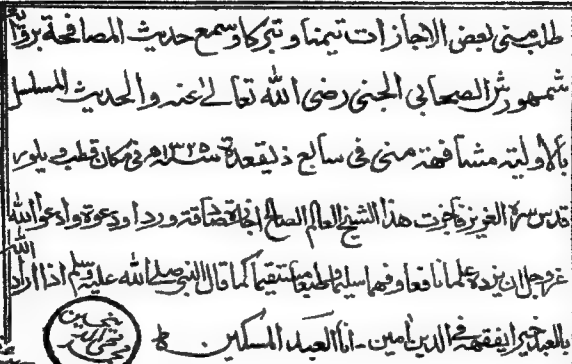 طلب منى بعض الاجازات تيمنا وتبركا وسمع حديث المصافحة برواية
شمهورش الصحابي الجنى رضى الله تعالى عنه والحديث المسلسل
بالأولية مشافهة منى فى سابع ذيقعدة سنة ١٣٢٥ھ فى مكان قطب ويلور
قدس سره العزيز فاجزت هذا الشيخ العالم الصالح اجازة ودعوة وادعو الله
عزوجل ان يزده علما نافعا وفهما سليما وطبعا مستقيما كما قال النبى صلى الله عليه وسلم اذا اراد الله
بالعبد خيرا يفقهه فى الدين امين - انا العبد المسكين